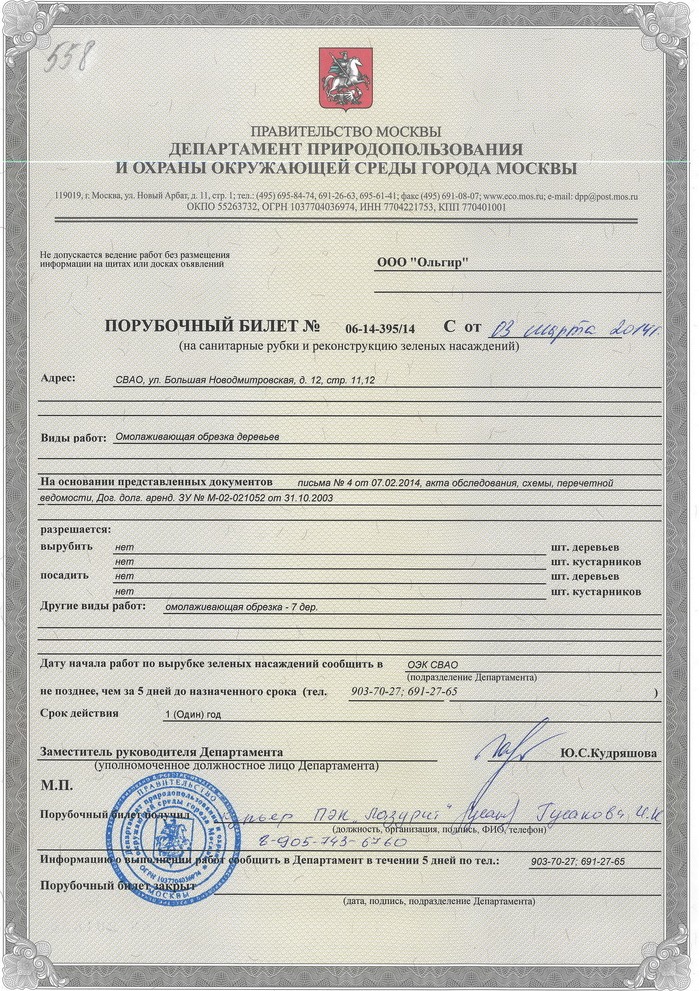 558
ПРАВИТЕЛЬСТВО МОСКВЫ
ДЕПАРТАМЕНТ ПРИРОДОПОЛЬЗОВАНИЯ
И ОХРАНЫ ОКРУЖАЮЩЕЙ СРЕДЫ ГОРОДА МОСКВЫ
119019, г. Москва, ул. Новый Арбат, д. 11, стр. 1; тел.: (495) 695-84-74, 691-26-63, 695-61-41; факс (495) 691-08-07; www.eco.mos.ru; e-mail: dpp@post.mos.ru
ОКПО 55263732, ОГРН 1037704036974, ИНН 7704221753, КПП 770401001
Не допускается ведение работ без размещения
информации на щитах или досках оъявлений
ООО "Ольгир"
ПОРУБОЧНЫЙ БИЛЕТ № 06-14-395/14 С от 03 марта 2014г.
(на санитарные рубки и реконструкцию зеленых насаждений)
Адрес: СВАО, ул. Большая Новодмитровская, д. 12, стр. 11,12
Виды работ: Омолаживающая обрезка деревьев
На основании представленных документов письма № 4 от 07.02.2014, акта обследования, схемы, перечетной
ведомости, Дог. долг. аренд. ЗУ № М-02-021052 от 31.10.2003
разрешается:
вырубить нет шт. деревьев
нет шт. кустарников
посадить нет шт. деревьев
нет шт. кустарников
Другие виды работ: омолаживающая обрезка - 7 дер.
Дату начала работ по вырубке зеленых насаждений сообщить в ОЭК СВАО
(подразделение Департамента)
не позднее, чем за 5 дней до назначенного срока (тел. 903-70-27; 691-27-65 )
Срок действия 1 (Один) год
Заместитель руководителя Департамента Ю.С.Кудряшова
(уполномоченное должностное лицо Департамента)
М.П.
Порубочный билет получил курьер ПЭК "Лазурит" Гусакова И.И
(должность, организация, подпись, ФИО, телефон)
8-905-743-6760
Информацию о выполнении работ сообщить в Департамент в течении 5 дней по тел.: 903-70-27; 691-27-65
Порубочный билет закрыт
(дата, подпись, подразделение Департамента)
ПРАВИТЕЛЬСТВО
МОСКВЫ
Департамент природопользования и охраны
окружающей среды города Москвы
ОГРН 1037704036974